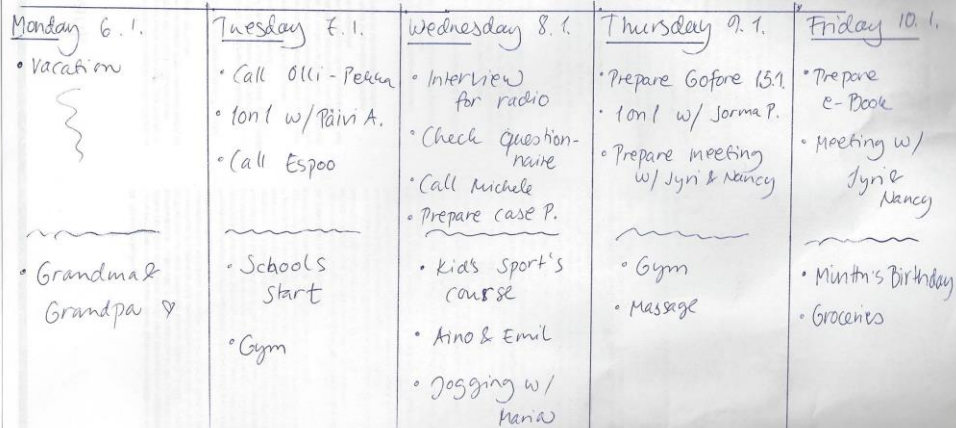 Monday 6.1.
• Vacation
• Grandma &
Grandpa ♡
Tuesday 7.1.
• Call Olli-Pekka
• 1on1 w/ Päivi A.
• Call Espoo
• Schools
start
• Gym
Wednesday 8.1.
• Interview
for radio
• Check question-
naire
• Call Michele
• Prepare case P.
• Kid's Sport's
course
• Aino & Emil
• Jogging w/
Maria
Thursday 9.1.
• Prepare Gofore 15.1.
• 1on1 w/ Jorma P.
• Prepare meeting
w/ Jyri & Nancy
• Gym
• Massage
Friday 10.1.
• Prepare
e-Book
• Meeting w/
Jyri &
Nancy
• Birthday
• Groceries